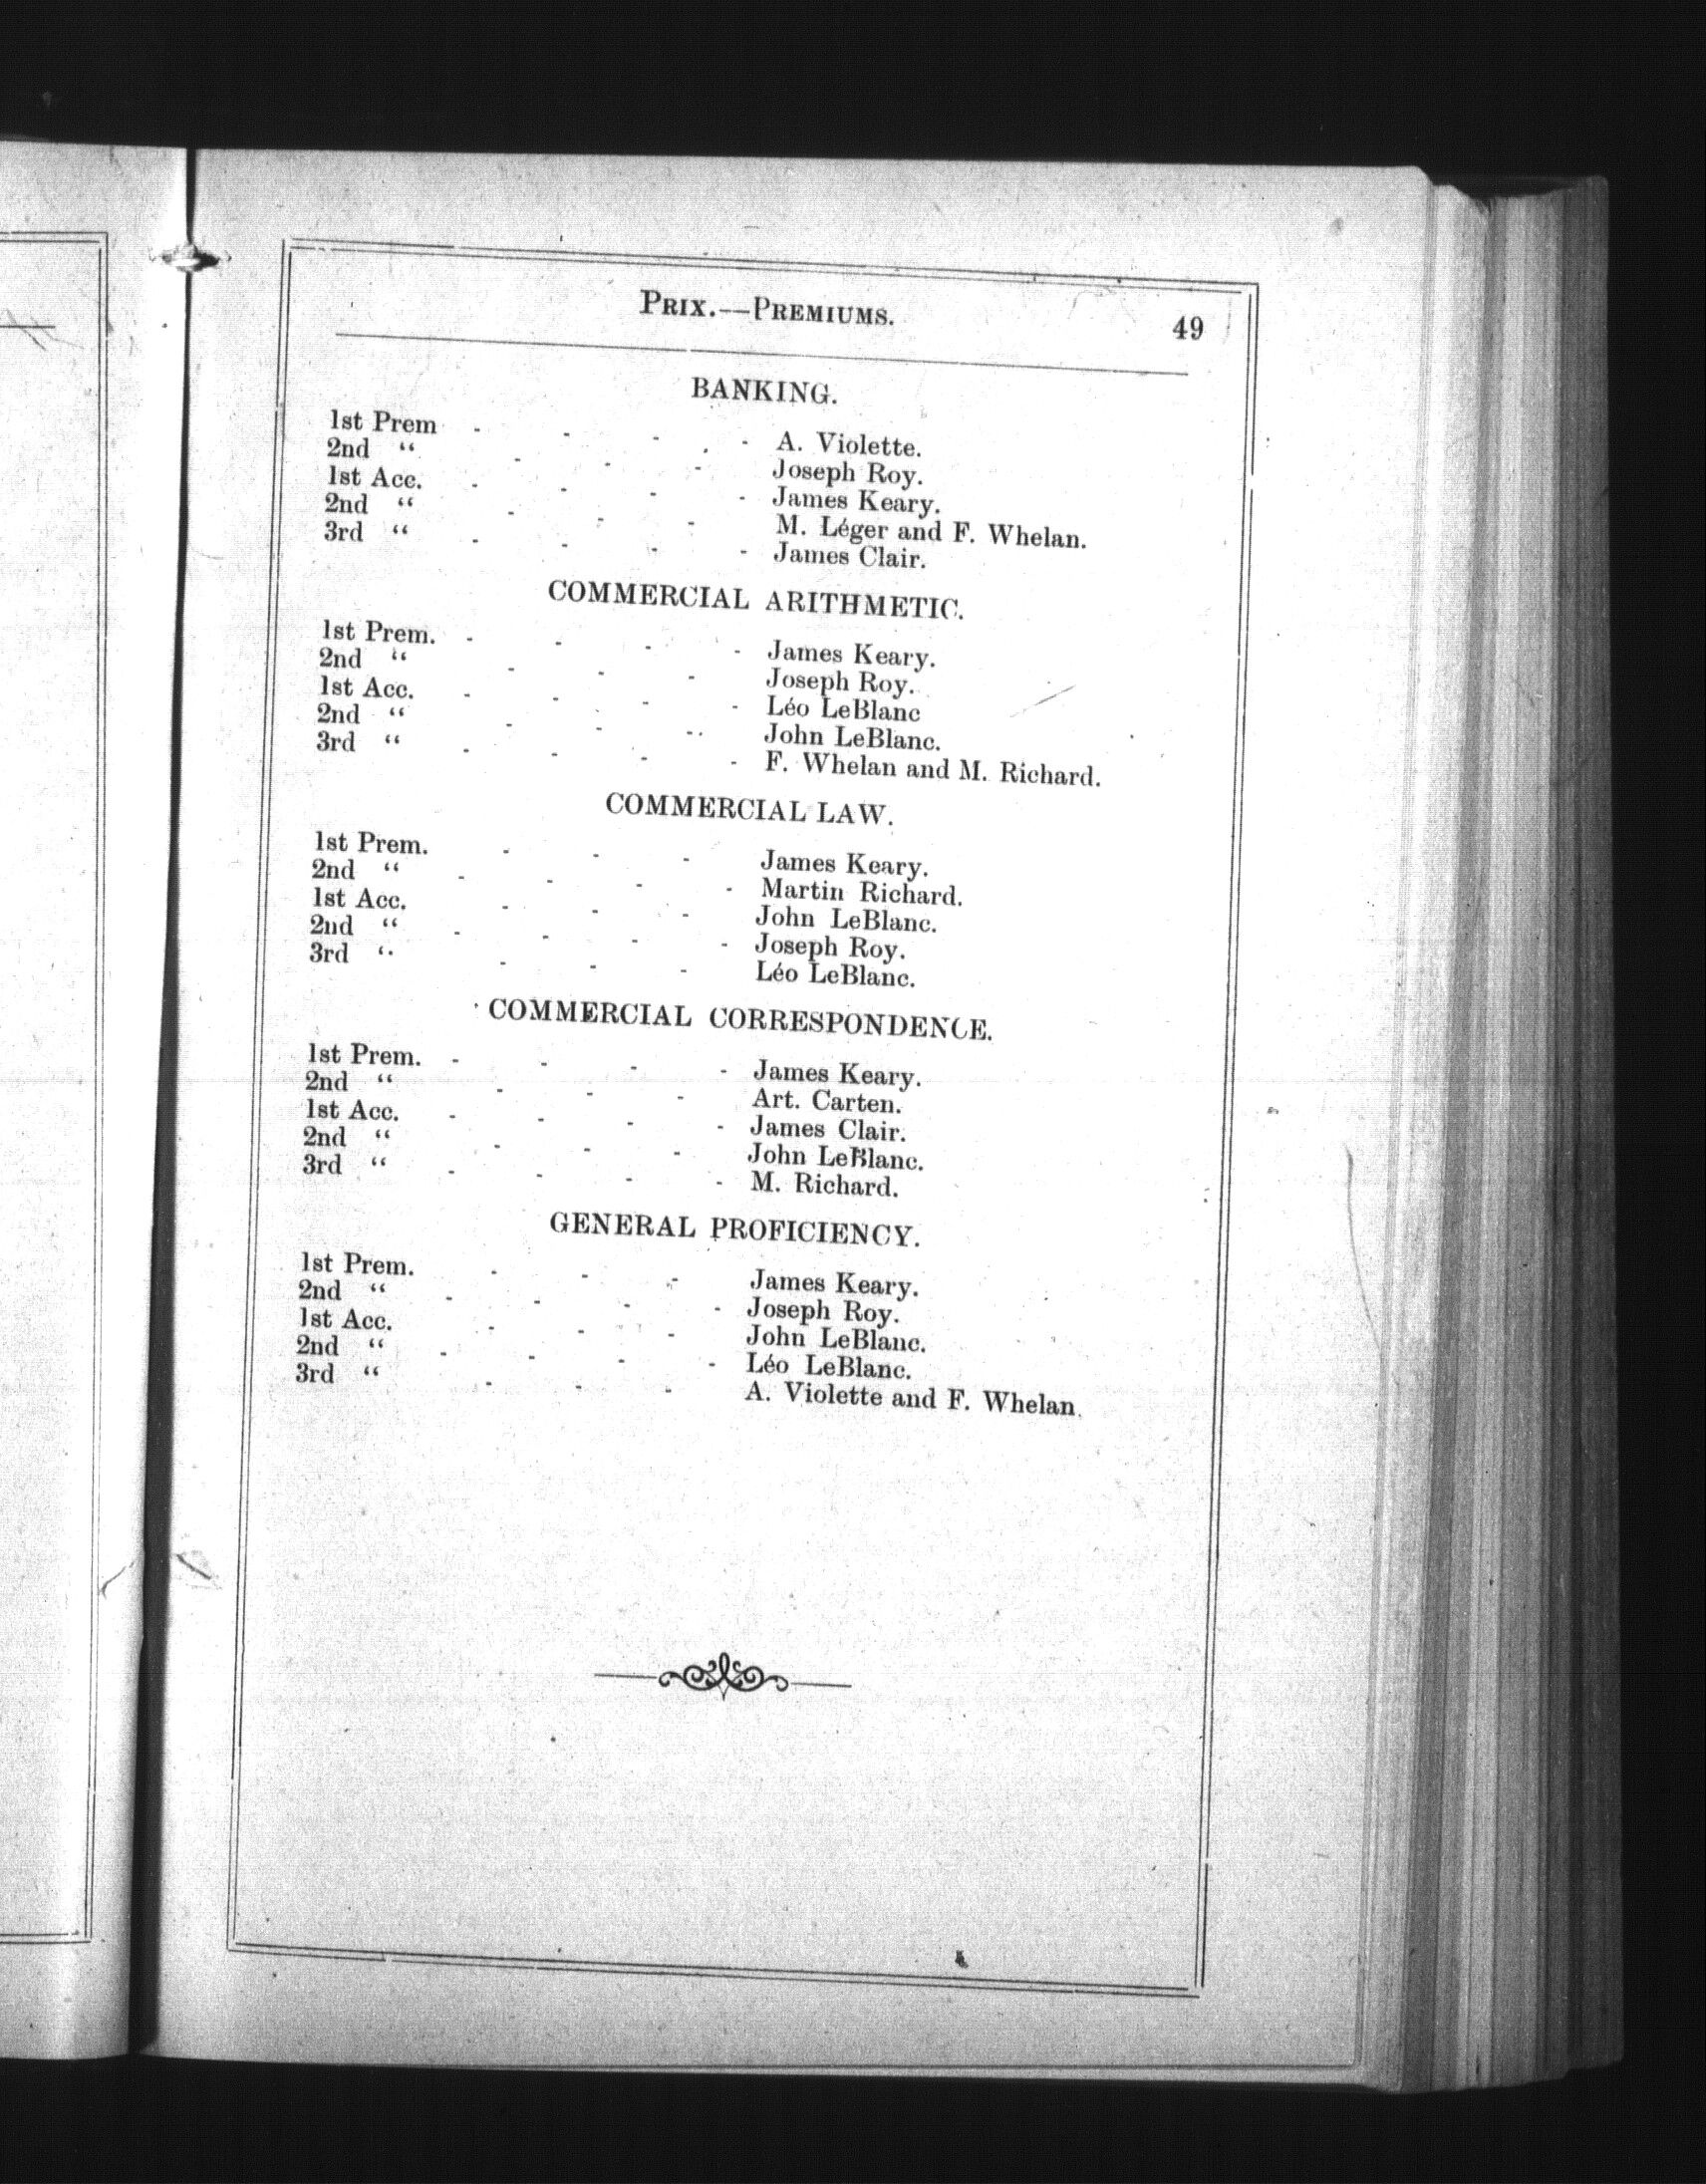 PRIX.—PREMIUMS. 49
BANKING.
1st Prem - - - - A. Violette.
2nd “ - - - Joseph Roy.
1st Acc. - - - - James Keary.
2nd “ - - - M. Léger and F. Whelan.
3rd “ - - - - James Clair.
COMMERCIAL ARITHMETIC.
1st Prem. - - - - James Keary.
2nd “ - - - Joseph Roy.
1st Acc. - - - - Léo LeBlanc
2nd “ - - - John LeBlanc.
3rd “ - - - - F. Whelan and M. Richard.
COMMERCIAL LAW.
1st Prem. - - - James Keary.
2nd “ - - - - Martin Richard.
1st Acc. - - - John LeBlanc.
2nd “ - - - - Joseph Roy.
3rd “ - - - Léo LeBlanc.
COMMERCIAL CORRESPONDENCE.
1st Prem. - - - - James Keary.
2nd “ - - - Art. Carten.
1st Acc. - - - - James Clair.
2nd “ - - - John LeBlanc.
3rd “ - - - - M. Richard.
GENERAL PROFICIENCY.
1st Prem. - - - James Keary.
2nd “ - - - - Joseph Roy.
1st Acc. - - - John LeBlanc.
2nd “ - - - - Léo LeBlanc.
3rd “ - - - A. Violette and F. Whelan.